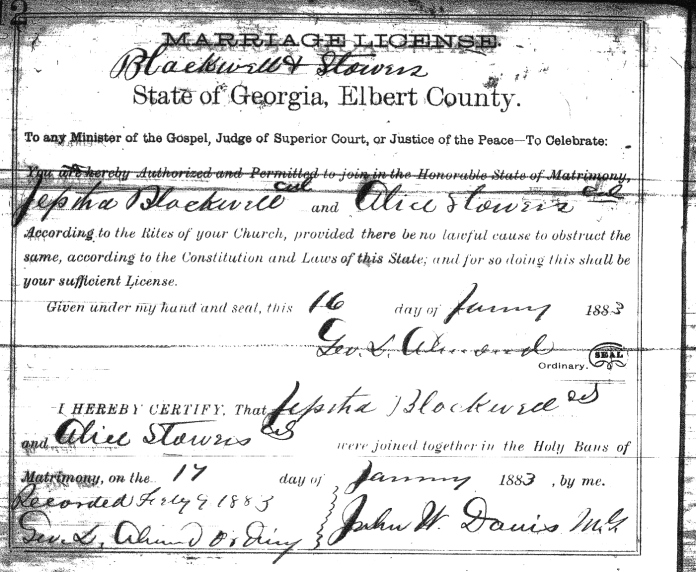 12
MARRIAGE LICENSE.
Blackwell & Stowers
State of Georgia, Elbert County.
To any Minister of the Gospel, Judge of Superior Court, or Justice of the Peace—To Celebrate:
You are hereby Authorized and Permitted to join in the Honorable State of Matrimony,
Jeptha Blackwell col and Alice Stowers col
According to the Rites of your Church, provided there be no lawful cause to obstruct the
same, according to the Constitution and Laws of this State; and for so doing this shall be
your sufficient License.
Given under my hand and seal, this 16 day of Janry 1883
Geo. L. Almond
SEAL
Ordinary.
I HEREBY CERTIFY, That Jeptha Blackwell col
and Alice Stowers col were joined together in the Holy Bans of
Matrimony, on the 17 day of Janry 1883, by me.
Recorded Feby 9 1883
Geo. L. Almond Ordinry John W. Davis M.G